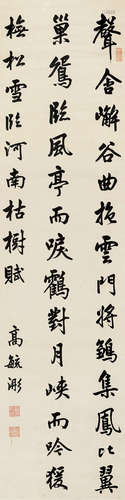 聲含嶰谷曲抱雲門將鶵集鳳比翼
巢鴛臨風亭而唳鶴對月峽而吟猨
橅松雪臨河南枯樹賦
高毓浵